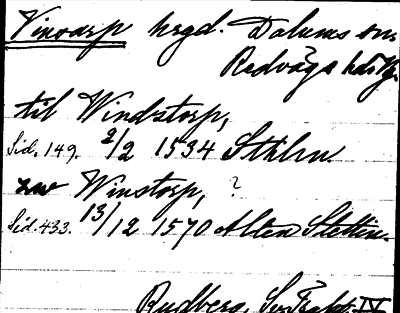 Vinsarp hrgd. Dalums sn.
Redvägs hd. Vg.
til Windstorp,
Sid. 149. 2/2 1534 Sthlm
zw Winstorp, ?
Sid. 433. 13/12 1570 Alten Stettin.
Rudberg, Sv. Trakt. IV